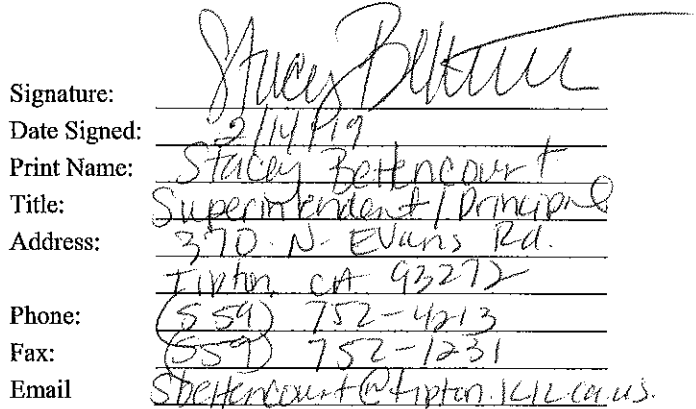 Signature: Stacey Bettencourt
Date Signed: 2/14/19
Print Name: Stacey Bettencourt
Title: Superintendent / Principal
Address: 370 N. Evans Rd.
Tipton CA 93272
Phone: (559) 752-4213
Fax: (559) 752-1231
Email Sbettencourt@tipton.k12.ca.us.